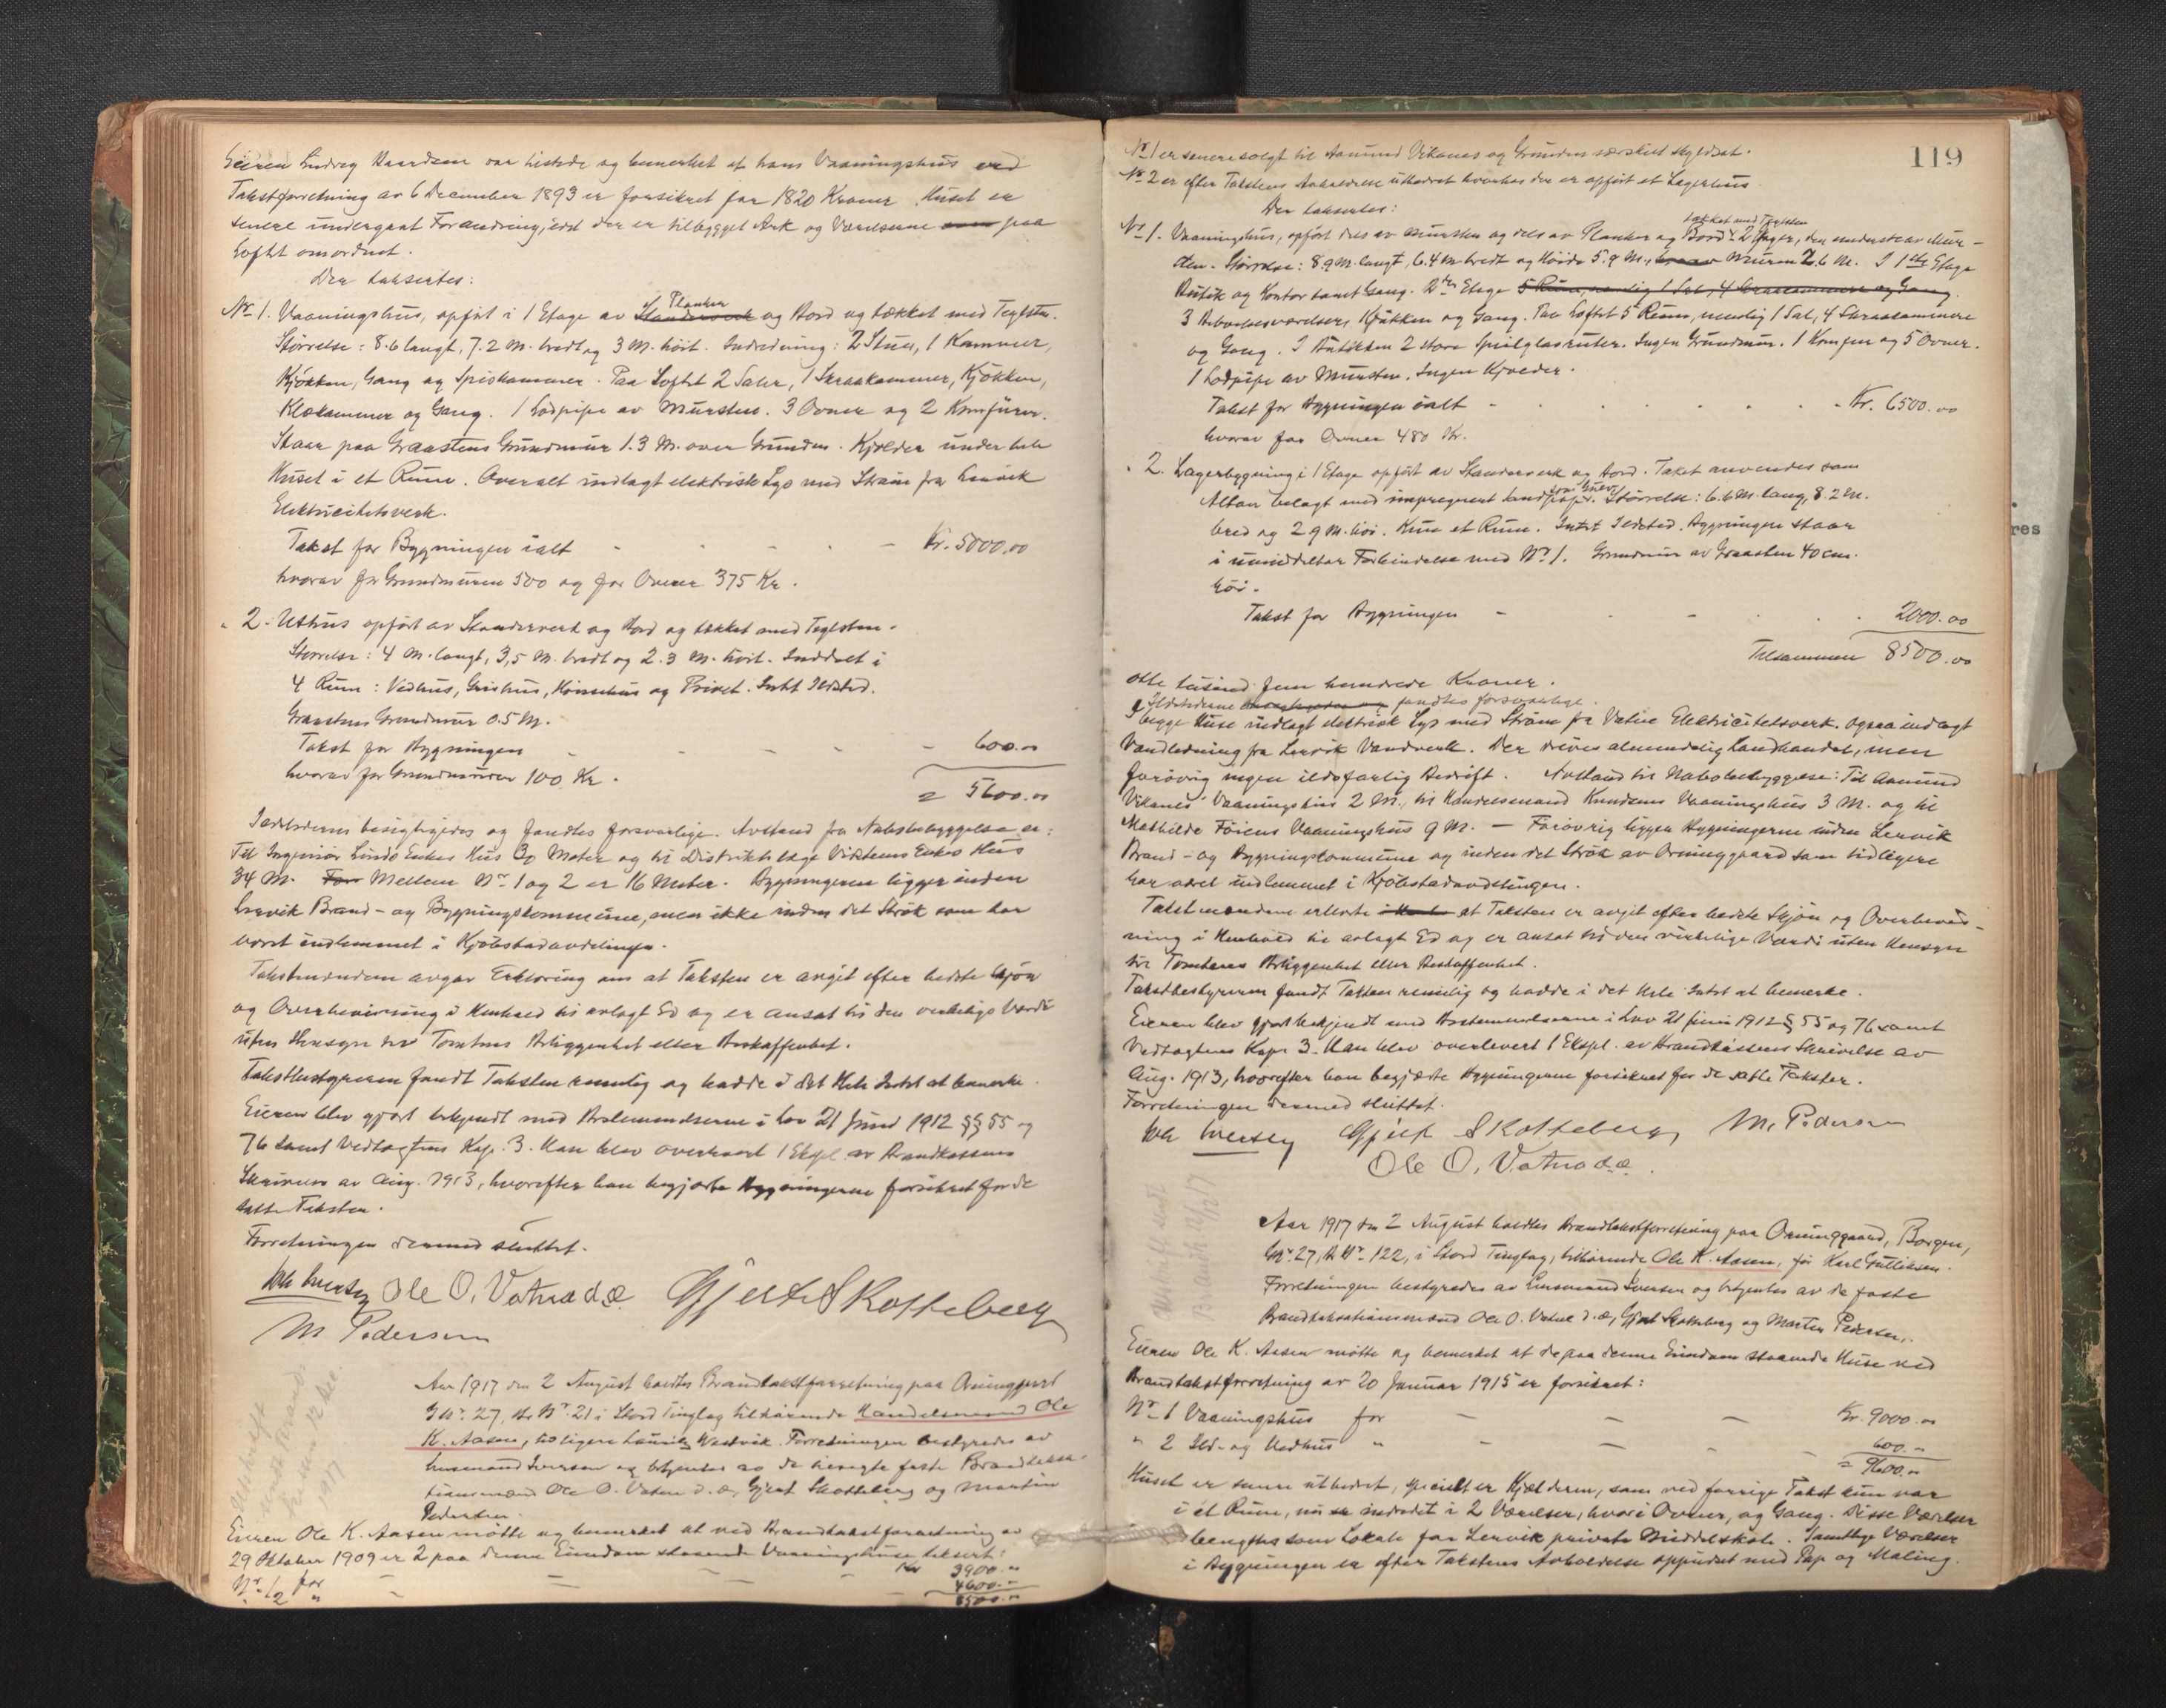 Eieren Ludvig Haardsen var tilstede og bemerket at hans Vaaningshus ved
Takstforretning av 6 December 1893 er forsikret for 1820 Kroner. Huset er
senere undergaat Forandring, idet der er tilbygget Ark og Værelserne paa
Loftet omordnet.
Der taksertes:
No 1. Vaaningshus, opført i 1 Etage av Standerverk Planker og Bord og tækket med Teglsten.
Størrelse: 8.6 langt, 7.2 M. bredt og 3 M. høit. Indredning: 2 Stuer, 1 Kammer,
Kjøkken, Gang og Spiskammer. Paa Loftet 2 Saler, 1 Skraakammer, Kjøkken,
Klækammer og Gang. 1 Lodpipe av Mursten. 3 Ovner og 2 Komfurer.
Staar paa Graastens Grundmur 1.3 M. over Grunden. Kjelder under hele
Huset i et Rum. Overalt indlagt elektrisk Lys med Strøm fra Lervik
Elektricitetsverk.
Takst for Bygningen ialt - - - - - Kr. 5000.00
hvorav for Grundmuren 500 og for Ovner 375 Kr.
" 2. Uthus opført av Standerverk og Bord og tækket med Teglsten.
Størrelse: 4 M. langt, 3,5 M. bredt og 2.3 M. høit. Inddelt i
4 Rum: Vedhus, Grishus, Hønsehus og Privet. Intet Ildsted.
Graastens Grundmur 0.5 M.
Takst for Bygningen - - - - - 600.00
hvorav for Grundmuren 100 Kr.
= 5600.00
Ildstederne besigtigedes og fandtes forsvarlige. Avstand fra Nabobebyggelse er:
Til Ingeniør Linds Enkes Hus 30 Meter og til Distriktslæge Viksteens Enkes Hus
34 M. For Mellem No 1 og 2 er 16 Meter. Bygningerne ligger inden
Lervik Brand- og Bygningskommune, men ikke inden det Strøk som har
været indlemmet i Kjøbstadavdelingen.
Takstmændene avgav Erklæring om at Taksten er avgit efter bedste Skjøn
og Overbevisning i Henhold til avlagt Ed og er ansat til den virkelige Værdi
uten Hensyn til Tomtens Beliggenhet eller Beskaffenhet.
Takstbestyreren fandt Taksten rimelig og hadde i det Hele Intet at bemerke.
Eieren blev gjort bekjendt med Bestemmelserne i Lov 21 Juni 1912 §§ 55 og
76 samt Vedtægtens Kap. 3. Han blev overlevert 1 Expl. av Brandkassens
Skrivelse av Aug. 1913, hvorefter han begjærte Bygningerne forsikret for de
satte Takster.
Forretningen dermed sluttet.
Joh Iversen Ole O. Vatna d.æ. Gjert S Kotteberg
M. Pedersen
Aar 1917 den 2 August holdtes Brandtakstforretning paa Orninggaard
G No. 27, Br No. 21 i Stord Tinglag tilhørende Handelsmand Ole
K. Aasen, tidligere Lauritz Vestvik. Forretningen bestyredes av
Lensmand Iversen og betjentes av de beeidigede faste Brandtaksa-
tionsmænd Ole O. Vatna d. æ, Gjert Skotteberg og Martin
Pedersen.
Utskrift
sendt Brandk.
1917
Eieren Ole K. Aasen møtte og bemerket at ved Brandtakstforretning av
29 Oktober 1909 er 2 paa denne Eiendom staaende Vaaningshuse taksert:
No 1 for - - - - Kr 3900.00
" 2 " - - - 4600.00
8500.00
119
No 1 er senere solgt til Aamund Vikanes og Grunden særskilt skyldsat.
No 2 er efter Takstens Avholdelse utbedret hvorhos der er opført et Lagerhus.
Der taksertes:
tækket med Teglsten
No 1. Vaaningshus, opført dels av Mursten og dels av Planker og Bord i 2 Etager, den underste av Mur-
sten. Størrelse: 8.9 M. langt, 6.4 M. bredt og Høide 5.9 M., hvorav Muren 2.6 M. I 1ste Etage
Butik og Kontor samt Gang. 2den Etage 5 Rum, nemlig 1 Sal, 4 Skraakammere og Gang.
3 Beboelsesværelser, 1 Kjøkken og Gang. Paa Loftet 5 Rum, nemlig 1 Sal, 4 Skraakammere
og Gang. I Butikken 2 store Speilglasruter. Ingen Grundmur. 1 Komfur og 5 Ovner.
1 Lodpipe av Mursten. Ingen Kjelder.
Takst for Bygningen ialt - - - - - Kr. 6500.00
hvorav for Ovner 480 Kr.
" 2. Lagerbygning i 1 Etage opført av Standerverk og Bord. Taket anvendes som
Altan belagt med impregnert Sandpap. Størrelse: 6.6 M. lang, 8.2 M.
bred og 2.9 M. høi. Kun et Rum. Intet Ildsted. Bygningen staar
i umiddelbar Forbindelse med No 1. Grundmur av Graasten 40 cm.
høi.
Takst for Bygningen - - - - 2000.00
Tilsammen 8500.00
otte tusind fem hundrede Kroner.
Ildstederne fandtes forsvarlige.
I begge Huse indlagt elektrisk Lys med Strøm fra Vatne Elektricitetsverk. Ogsaa indlagt
Vandledning fra Lervik Vandverk. Der drives almindelig Landhandel, men
forøvrig ingen ildsfarlig Bedrift. Avstand til Nabobebyggelse: Til Aamund
Vikanes' Vaaningshus 2 M., til Handelsmand Knudsens Vaaningshus 3 M. og til
Mathilde Føiens Vaaningshus 9 M. — Forøvrig ligger Bygningerne inden Lervik
Brand- og Bygningskommune og inden det Strøk av Orninggaard som tidligere
har været indlemmet i Kjøbstadavdelingen.
Takstmændene erklærte at Taksten er avgit efter bedste Skjøn og Overbevis-
ning i Henhold til avlagt Ed og er ansat til den virkelige Værdi uten Hensyn
til Tomtens Beliggenhet eller Beskaffenhet.
Takstbestyreren fandt Taksten rimelig og hadde i det Hele Intet at bemerke.
Eieren blev gjort bekjendt med Bestemmelserne i Lov 21 Juni 1912 § 55 og 76 samt
Vedtægtens Kap. 3. Han blev overlevert 1 Expl. av Brandkassens Skrivelse av
Aug. 1913, hvorefter han begjærte Bygningerne forsikret for de satte Takster.
Forretningen dermed sluttet.
Joh Iversen Gjert S Kotteberg M. Pedersen
Ole O. Vatna d.æ.
Aar 1917 den 2 August holdtes Brandtakstforretning paa Orninggaard, Borgen,
G No. 27, B No. 122, i Stord Tinglag, tilhørende Ole K. Aasen, før Karl Gulliksen.
Forretningen bestyredes av Lensmand Iversen og betjentes av de faste
Brandtaksationsmænd Ole O. Vatne d.æ, Gjert Skotteberg og Martin Pedersen.
Eieren Ole K. Aasen møtte og bemerket at de paa denne Eiendom staaende Huse ved
Brandtakstforretning av 20 Januar 1915 er forsikret:
No 1 Vaaningshus for - - - Kr. 9000.00
" 2 Ild- og Vedhus " - - - - 600.00
= 9600.00
Huset er senere utbedret, specielt er Kjelderen, som ved forrige Takst kun var
i ét Rum, nu er indredet i 2 Værelser, hvori Ovner, og Gang. Disse Værelser
benyttes som Lokale for Lervik private Middelskole. Samtlige Værelser
i Bygningen er efter Takstens Avholdelse oppudset med Pap og Maling.